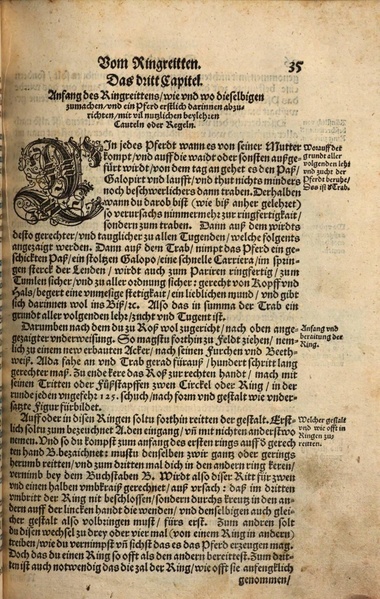 Vom Ringreitten.
35
Das dritt Capitel.
Anfang des Ringreittens/wie und wo dieselbigen
zumachen/und ein Pferd erstlich darinnen abzu-
richten/mit vñ nutzlichen beylehren
Cauteln oder Regeln.
EIn jedes Pferdt wann es von seiner Mutter
kompt/und auff die waidt oder sonsten auffge-
fürt wirdt/von dem tag an gehet es den Paß/
Galopirt und laufft/und thut nichts minders
noch beschwerlichers dann traben. Derhalben
wann du darob bist (wie biß anher gelehret)
so verursachs nimmermehr zur ringfertigkait/
sondern zum traben. Dann auß dem wirdts
desto gerechter/und tauglicher zu allen Tugenden/welche folgents
angezaigt werden. Dann auß dem Trab/nimpt das Pferd ein ge-
schickten Paß/ein stoltzen Galopo/eine schnelle Carriera/im sprin-
gen sterck der Lenden/wirdt auch zum Pariren ringfertig/zum
Tumlen sicher/und zu aller ordnung sicher: gerecht von Kopff und
Hals/begert eine unmesige stetigkait/ein lieblichen mund/und gibt
sich darinnen wol ins Biß/ꝛc. Also das in summa der Trab ein
grundt aller volgenden lehr/zucht und Tugent ist.
Worauff der
grundt aller
volgenden leht
und zucht der
Pferdt beruhe/
Das ist Trab.
Darumben nach dem du zu Roß wol zugericht/nach oben ange-
gezaigter underweisung. So magstu forthin zu Feldt ziehen/nem-
lich zu einem new erbauten Acker/nach seinen Furchen und Beeth-
weiß. Alda fahe an und Trab gerad fürauß/hundert schrit lang
gerechter maß. Zu ende kere das Roß zur rechten handt/mach mit
seinen Tritten oder Füßstapffen zwen Circkel oder Ring/in der
runde jeden ungefehr 125. schuch/nach form und gestalt wie under-
satzte Figur fürbildet.
Anfang und
beraitung der
Ring.
Auff oder in disen Ringen soltu forthin reitten der gestalt. Erst-
lich soltu zum bezeichnet A. den eingang/vñ mit nichten anderstwo
nemen. Und so du kompst zum anfang des ersten rings auff d gerech
ten hand B. bezeichnet: mustu denselben zwir gantz oder gerings
herumb reitten/und zum dritten mal dich in den andern ring keren/
vernimb bey dem Buchstaben B. Wirdt also diser Ritt für zwen
und ein halben umbkraiß gerechnet/auß ursach: daß im dritten
umbritt der Ring nit beschlossen/sondern durchs kreutz in den an-
dern auff der lincken handt die wenden/und denselbigen auch glei-
cher gestalt also volbringen must/fürs erst. Zum andern solt
du disen wechsel zu drey oder vier mal (von einem Ring in andern)
treiben/wie du vernimpst vñ sichst das es das Pferd erzeugen mag.
Doch das du einen Ring so offt als den andern bereittest. Zum drit-
ten ist auch notwendig das die zal der Ring/wie offt sie anfengklich
Welcher gestalt
und wie offt in
Ringen zu
reitten.
genommen/